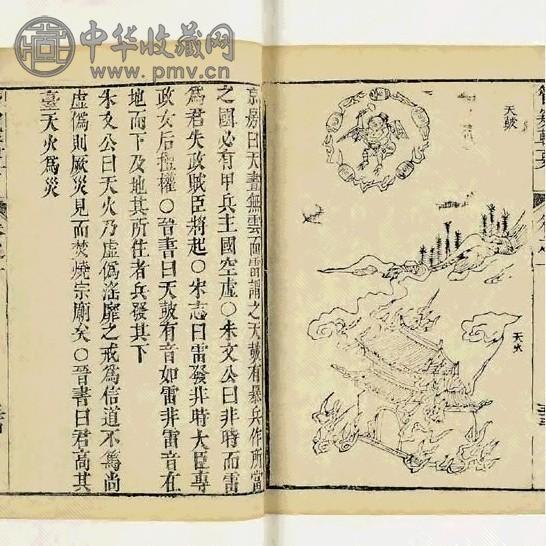 中华收藏网
www.pmv.cn
管窺輯要
天鼓
天火
京房曰天晝無雲而雷謂之天鼓有暴兵作所當
之國必有甲兵主國空虛○朱文公曰非時而雷
爲君失政賊臣將起○宋志曰雷發非時大臣專
政女后擅權○晉書曰天鼓有音如雷非雷音在
地而下及地其所住者兵發其下
朱文公曰天火乃虛僞滛靡之戒爲信道不篤尚
虛僞則厥災見而焚燒宗廟矣○晉書曰君高其
臺天火爲災